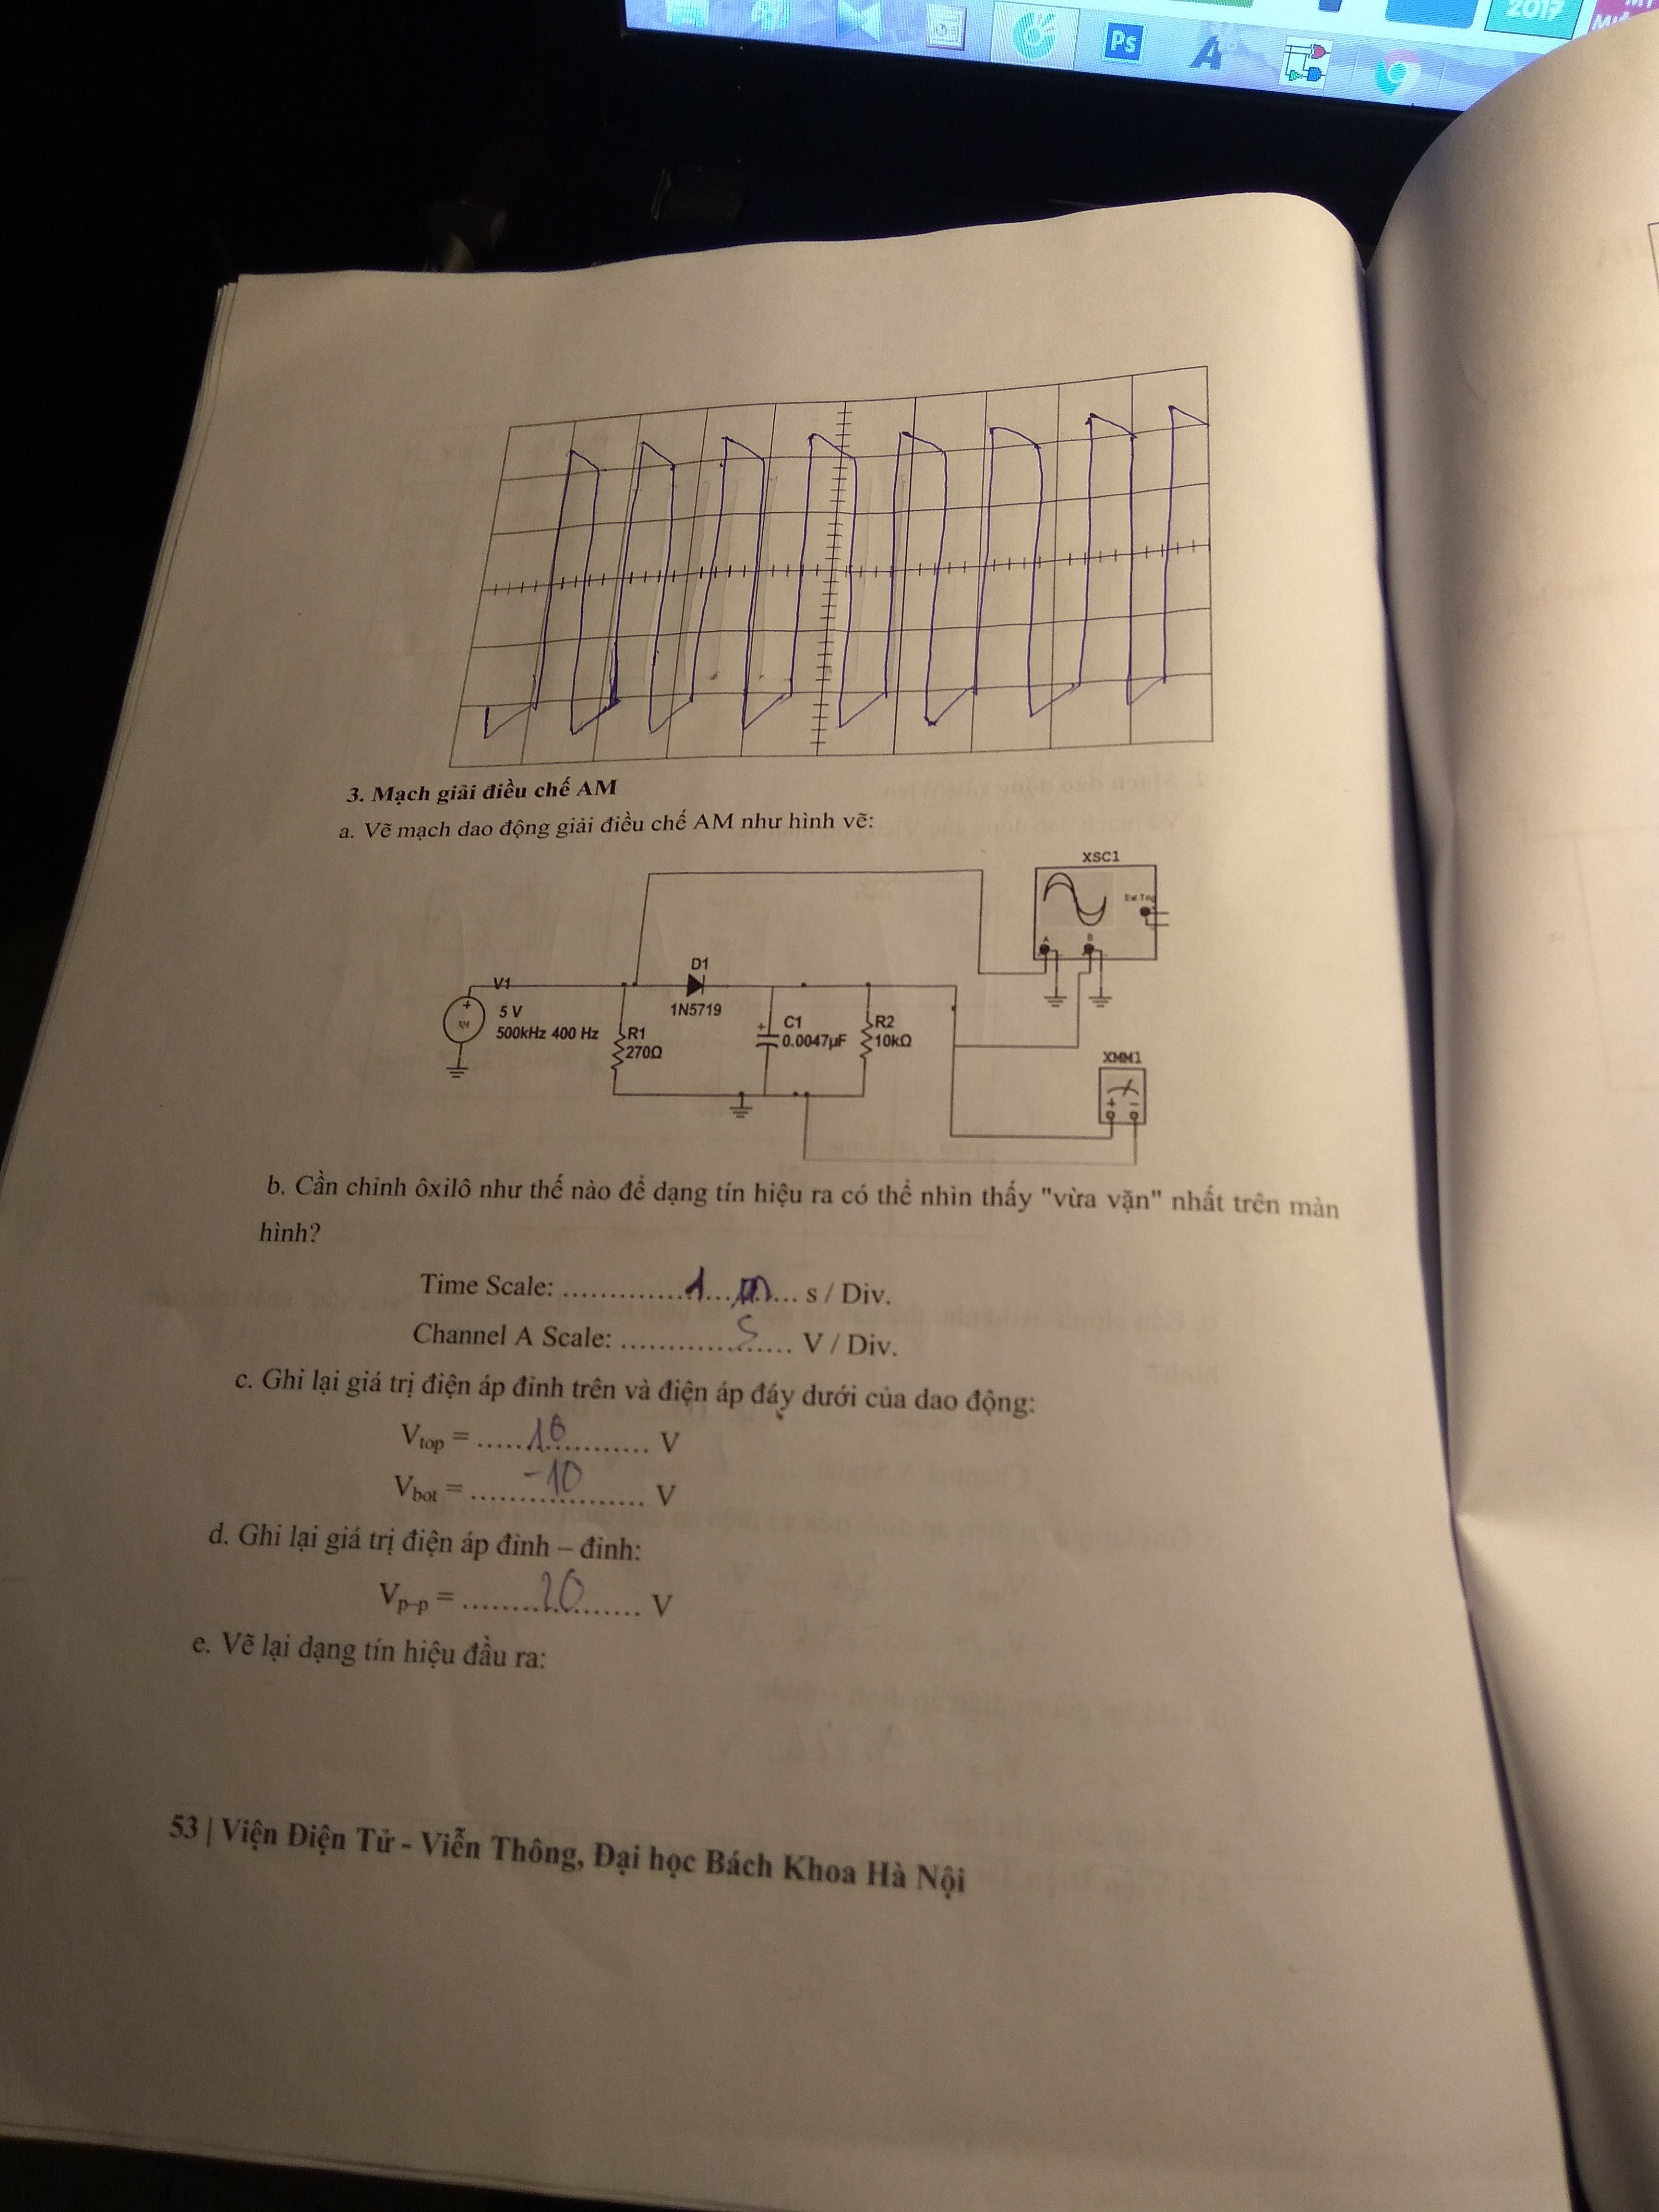 2017
Ps
3. Mạch giải điều chế AM
a. Vẽ mạch dao động giải điều chế AM như hình vẽ:
XSC1
Ext Trig
A B
V1
5 V
500kHz 400 Hz
AM
D1
1N5719
R1
270Ω
C1
0.0047µF
R2
10kΩ
XMM1
b. Cần chỉnh ôxilô như thế nào để dạng tín hiệu ra có thể nhìn thấy "vừa vặn" nhất trên màn
hình?
Time Scale: ..............1...m... s / Div.
Channel A Scale: ..........5....... V / Div.
c. Ghi lại giá trị điện áp đỉnh trên và điện áp đáy dưới của dao động:
Vtop = ......10............ V
Vbot = ......-10............ V
d. Ghi lại giá trị điện áp đỉnh – đỉnh:
Vp–p = .........20......... V
e. Vẽ lại dạng tín hiệu đầu ra:
53 | Viện Điện Tử - Viễn Thông, Đại học Bách Khoa Hà Nội